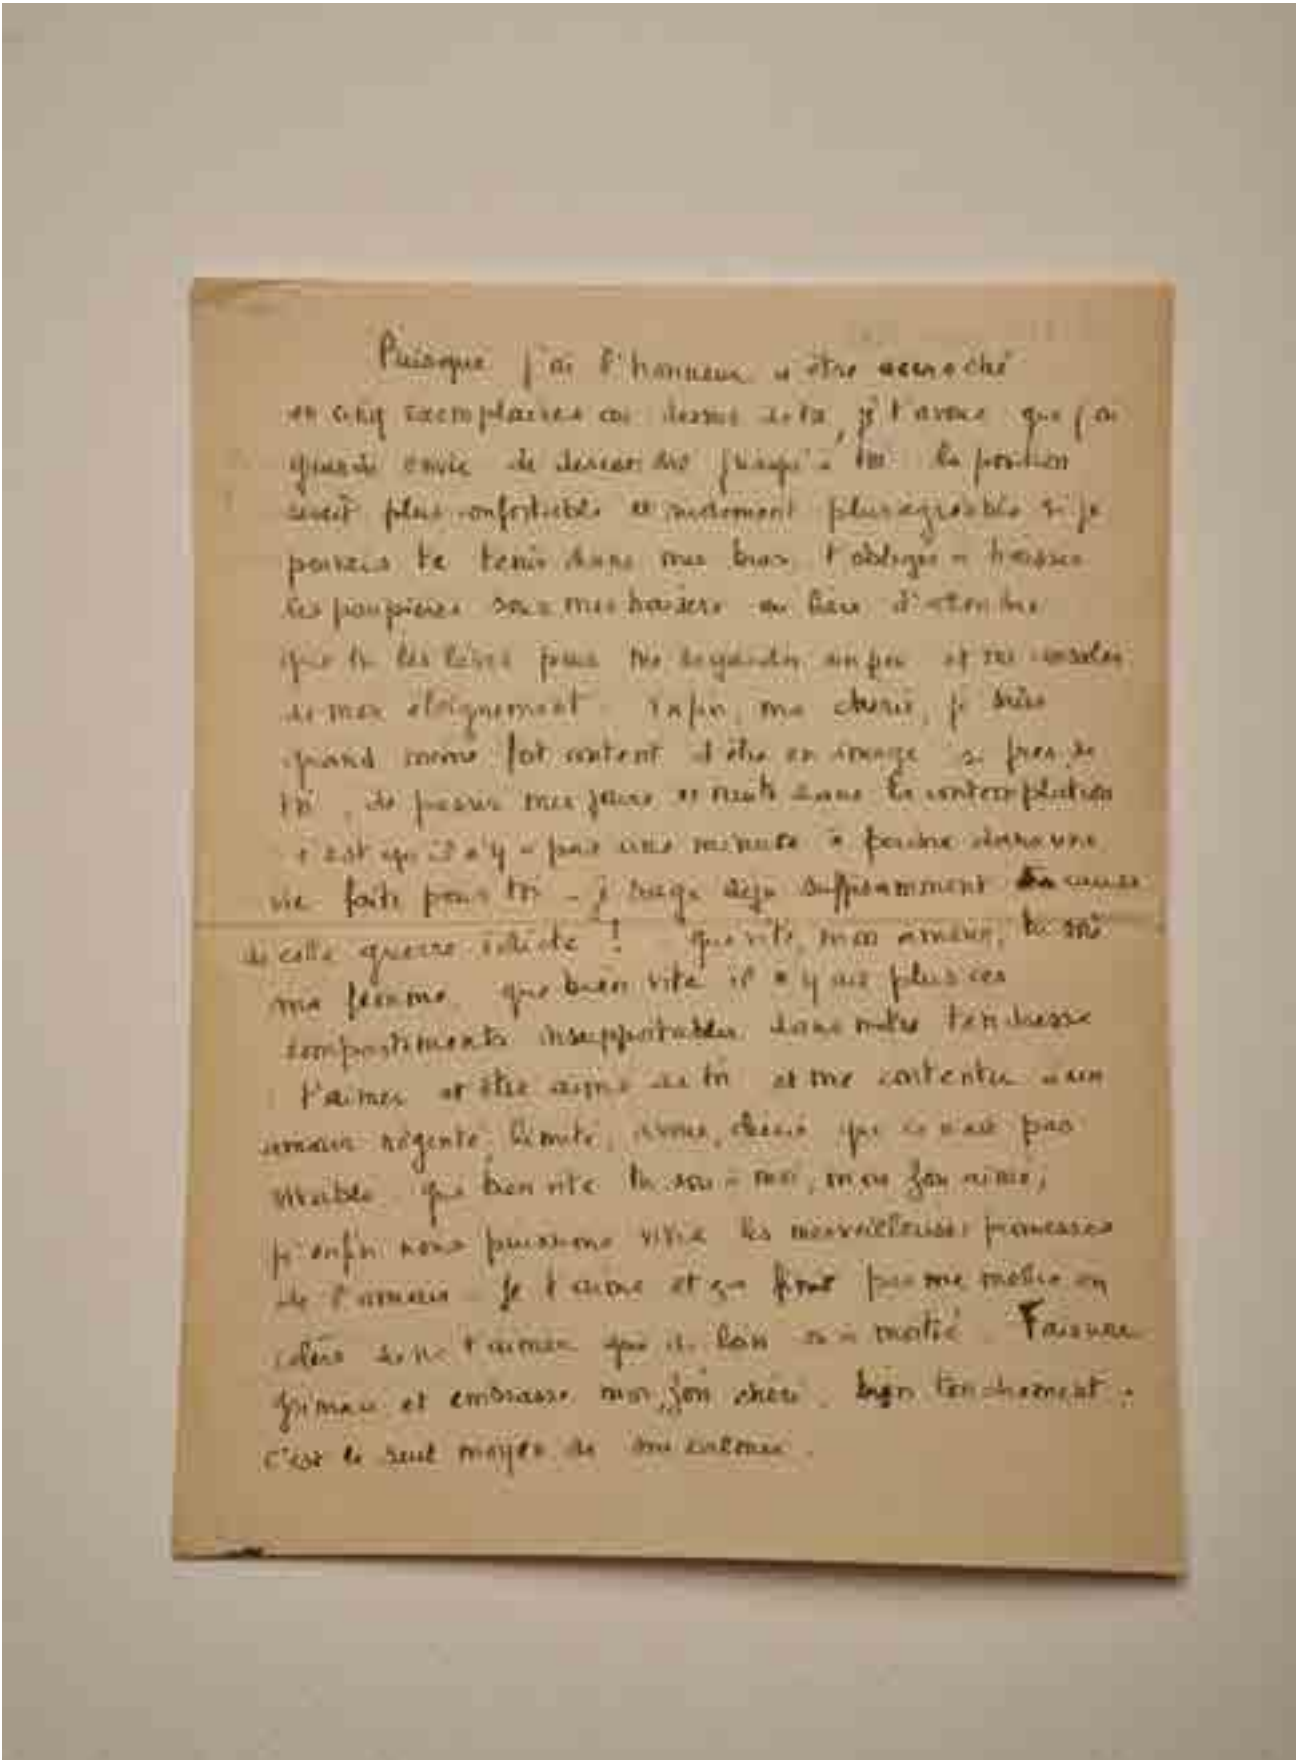 Puisque j'ai l'honneur d'être accroché
en cinq exemplaires au dessus de ta, je t'avoue que j'ai
grande envie de descendre jusqu'à toi la position
serait plus confortable et sûrement plus agréable si je
pouvais te tenir dans mes bras, t'obliger à baisser
les paupières sous mes baisers au lieu d'attendre
que tu les lèves pour me regarder un peu et me consoler
de mon éloignement. Enfin, ma chérie, je suis
quand même fort content d'être en image si près de
toi, de passer mes jours et nuits dans la contemplation
c'est qu'il n'y a pas une minute à perdre dans une
vie faite pour toi - je rage déjà suffisamment à cause
de cette guerre idiote ! que vite, mon amour, tu sois
ma femme, que bien vite il n'y ait plus ces
compartiments insupportables dans notre tendresse
t'aimer et être aimé de toi et me contenter d'un
amour régenté, limité, avoue, chérie que ce n'est pas
vivable. que bien vite tu sois à moi, mon aimé,
qu'enfin nous puissions vivre les merveilleuses promesses
de l'amour - Je t'aime et ça finit par me mettre en
colère de ne t'aimer que de loin ou à moitié. Fais une
grimace et embrasse moi, chéri, bien tendrement.
C'est le seul moyen de me calmer.